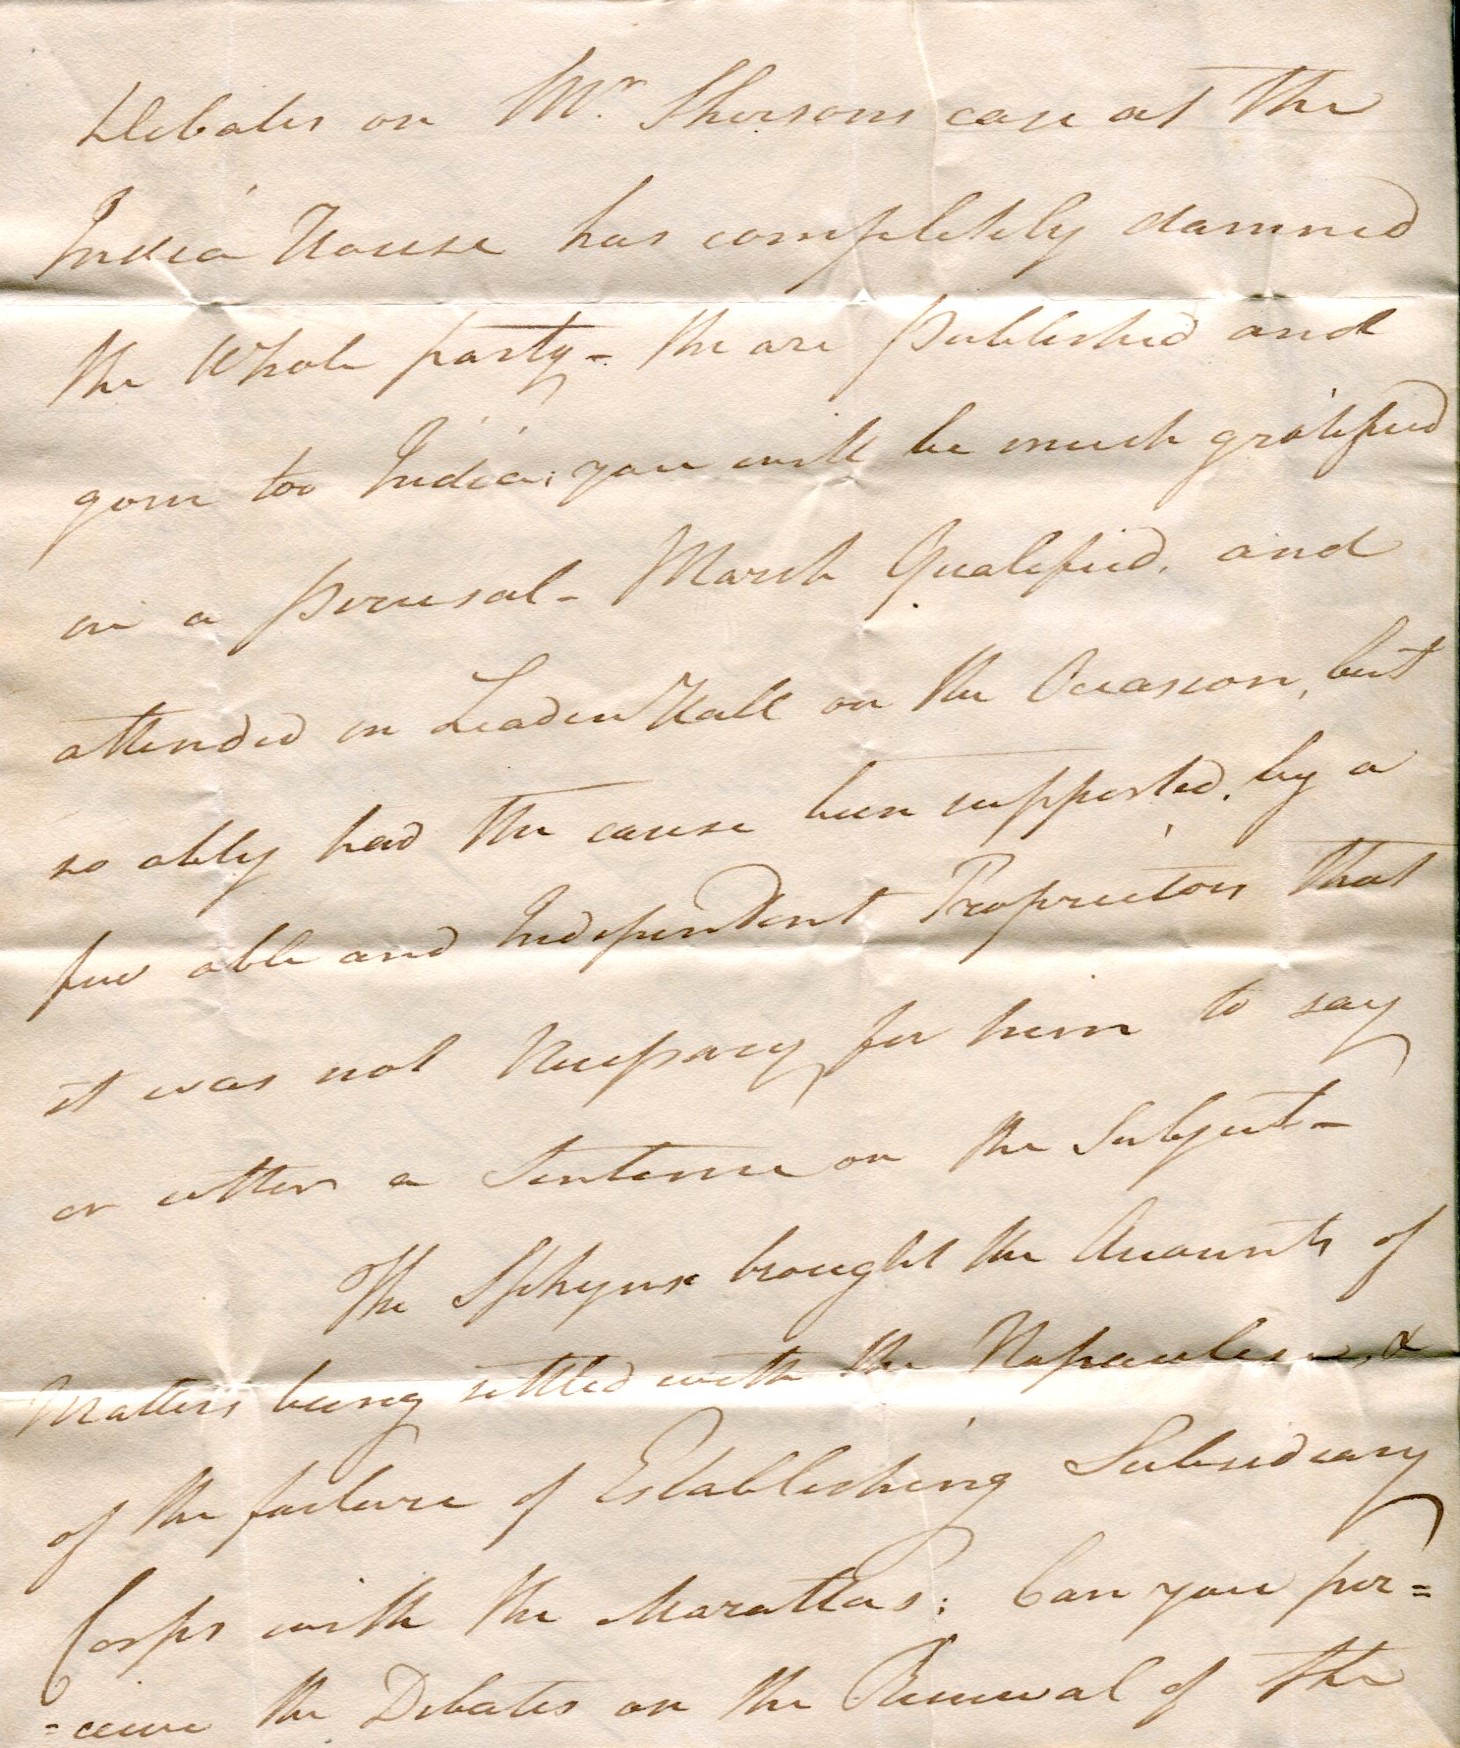 Debates on Mr. Shersons case at the
India House has completely damned
the Whole party - the are Published and
gone too India; you will be much gratified
on a perusal - March Qualified, and
attended in Leaden Hall on the Occasion, but
so ably had the cause been supported, by a
few able and Independent Proprietors that
it was not Necessary for him to say
or utter a Sentence on the Subject -
The Sphynx brought the Accounts of
Matters being settled with the Napaulese, &
of the failure of Establishing Subsidiary
Corps with the Marattas; Can you per=
=ceive the Debates on the Renewal of the